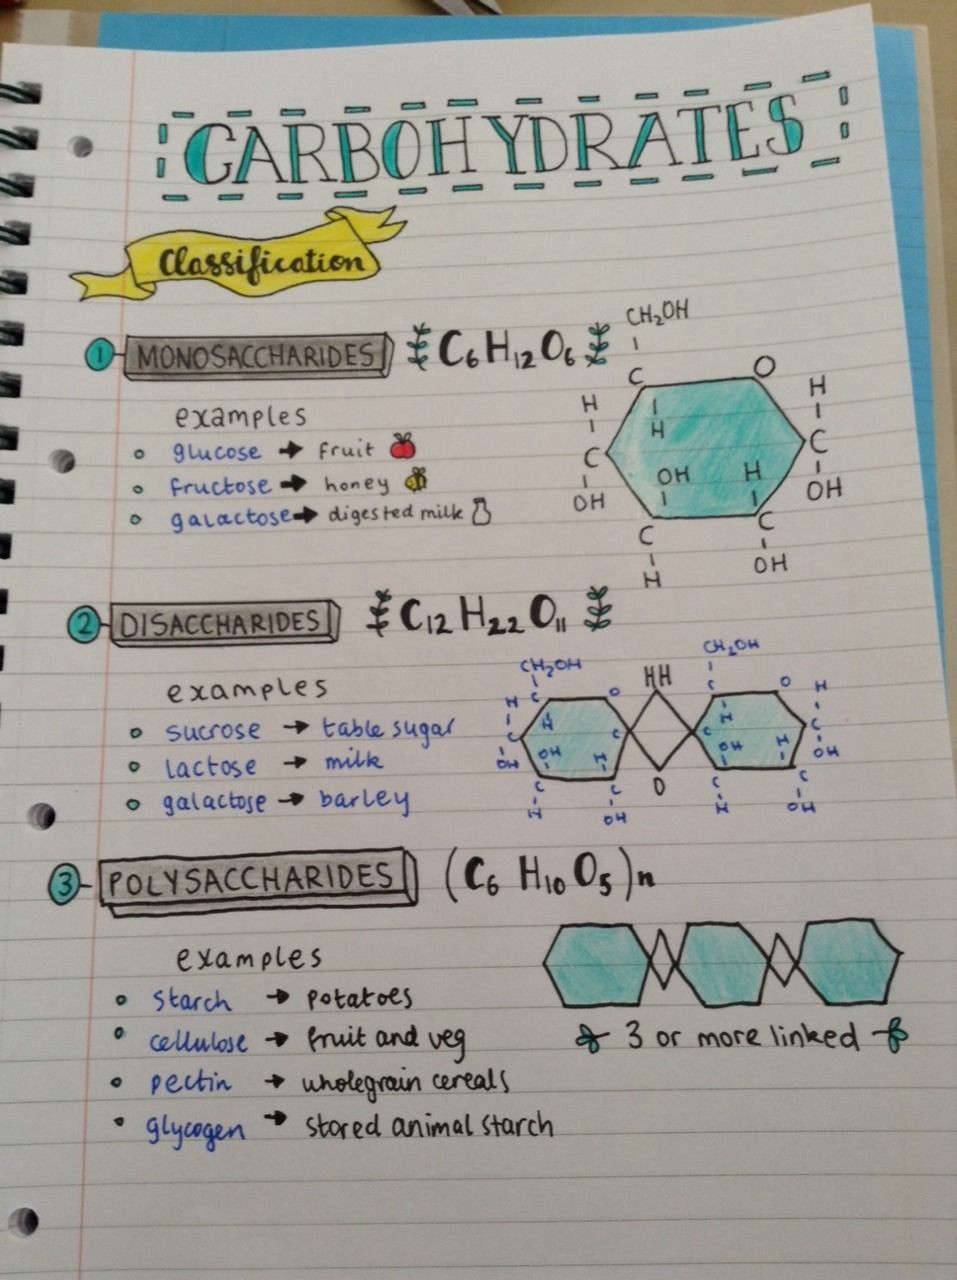 CARBOHYDRATES
Classification
1 MONOSACCHARIDES C6H12O6
examples
glucose → fruit
fructose → honey
galactose → digested milk
CH2OH
C O
H H H
C C
OH H OH
OH
C C
H OH
2 DISACCHARIDES C12H22O11
examples
sucrose → table sugar
lactose → milk
galactose → barley
CH2OH HH CH2OH
C O C O
H H C C H H
C C
OH OH H O OH H OH
C C C C
H OH H OH
3 POLYSACCHARIDES (C6H10O5)n
examples
starch → potatoes
cellulose → fruit and veg
pectin → wholegrain cereals
glycogen → stored animal starch
3 or more linked